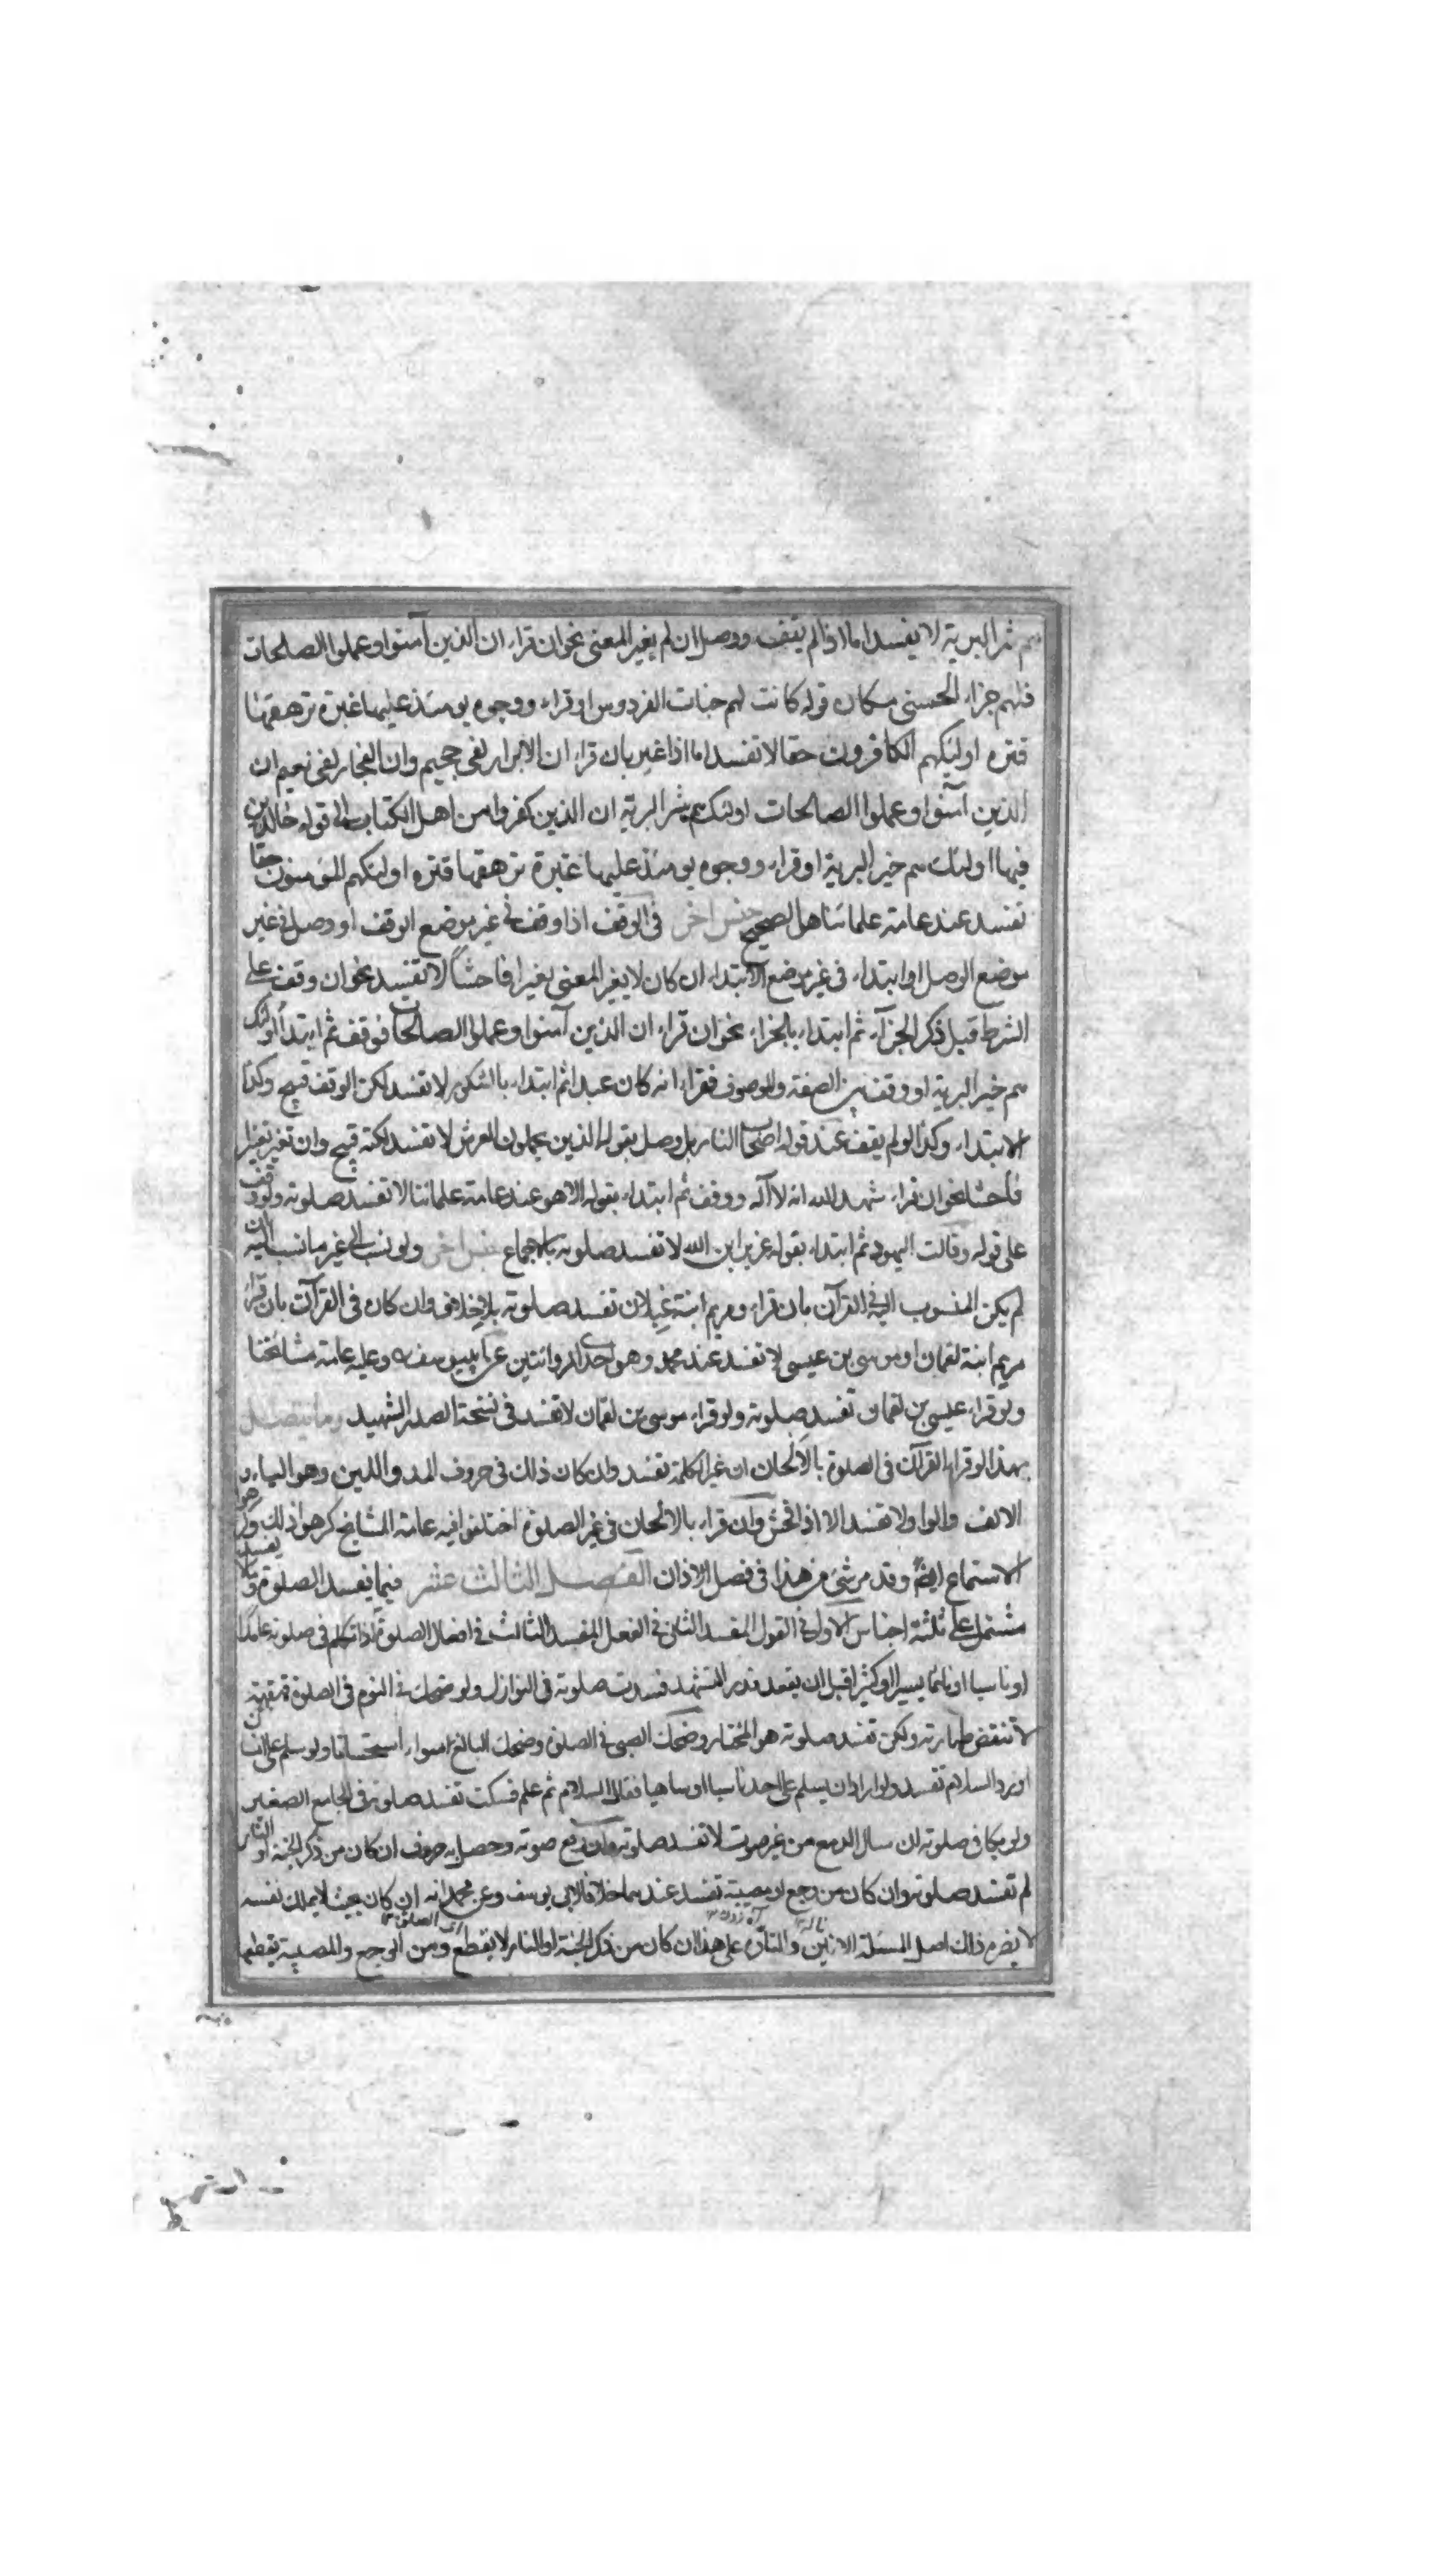 هم شر البرية لا يفسد اما اذا لم يقف ووصل ان لم يغير المعنى نحو ان قراء ان الذين آمنوا وعملوا الصلحات
فلهم جزاء الحسنى مكان قوله كانت لهم جنات الفردوس او قراء ووجوه يومئذ عليها غبرة ترهقها
قتره اولئكهم الكافرون حقا لا تفسد اما اذا غير بان قراء ان الابرار لفى جحيم وان الفجار لفى نعيم ان
الذين آمنوا وعملوا الصالحات اولئك هم شر البرية ان الذين كفروا من اهل الكتاب الى قوله خالدين
فيها اولئك هم خير البرية او قراء ووجوه يومئذ عليها غبرة ترهقها قتره اولئكهم المؤمنون حقا
تفسد عند عامة علمائنا هل الصحيح جنس اخر فى الوقف اذا وقف فى غير موضع الوقف او وصل فى غير
موضع الوصل او ابتداء فى غير موضع الابتداء ان كان لا يغير المعنى تغيرا فاحشاً لا تفسد نحو ان وقف على
الشرط قبل ذكر الجزآء ثم ابتداء بالجزاء نحو ان قراء ان الذين آمنوا وعملوا الصالحات فوقف ثم ابتدأ اولئك
هم خير البرية او وقف بين الصفة والموصوف فقراء انه كان عبدا ثم ابتداء بالشكور لا تفسد لكن الوقف قبيح وكذا
الابتداء وكذا لو لم يقف عند قوله اصحاب النار بل وصل بقوله الذين يحملون العرش لا تفسد لكنه قبيح وان تغير تغيرا
فاحشا نحو ان قراء شهد الله انه لا آله ووقف ثم ابتداء بقوله الا هو عند عامة علمائنا لا تفسد صلوته ولو وقف
على قوله وقالت اليهود ثم ابتداء بقوله عزير ابن الله لا تفسد صلوته بالاجماع جنس اخر ولو نسب الى غير ما نسب اليه ان
لم يكن المنسوب اليه فى القرآن بان قراء ومريم ابنة غيلان تفسد صلوته بلا خلاف وان كان فى القرآن بان قراء
مريم ابنة لقمان او موسى بن عيسى لا تفسد عند محمد وهو احدى الروايتين عن ابى يوسف وعليه عامة مشائخنا
ولو قراء عيسى بن لقمان تفسد صلوته ولو قراء موسى بن لقمان لا تفسد فى نسخة الصدر الشهيد وما يتصل
بهذا لو قراء القرآن فى الصلوة بالالحان ان غير الكلمة تفسد وان كان ذلك فى حروف المد واللين وهو الياء و
الالف والواو لا تفسد الا اذا فحش وان قراء بالالحان فى غير الصلوة اختلفوا فيه عامة المشايخ كرهوا ذلك وكرهوا
الاستماع ايضا وقد مر شئ من هذا فى فصل الاذان الفصل الثالث عشر فيما يفسد الصلوة وما لا يفسد
مشتمل على ثلثة اجناس الاول فى القول المفسد الثانى فى الفعل المفسد الثالث فى افعال الصلوة اذا تكلم فى صلوته عامدا
او ناسيا او نائما يسيرا او كثيرا قبل ان يقعد قدر التشهد فسدت صلوته فى النوازل ولو ضحك فى النوم فى الصلوة قهقهة
لا تنقض طهارته ولكن تفسد صلوته هو المختار وضحك الصبى فى الصلوة وضحك البالغ سواء استحسانا ولو سلم على انسان
او رد السلام تفسد ولو اراد ان يسلم على احد ناسيا او ساهيا فقال السلام ثم علم فسكت تفسد صلوته فى الجامع الصغير
ولو بكا فى صلوته ان سال الدمع من غير صوت لا تفسد صلوته وان رفع صوته وحصل به حروف ان كان من ذكر الجنة او النار
لم تفسد صلوته وان كان من وجع او مصيبة تفسد عندهما خلافا لابى يوسف وعن محمد انه ان كان بحيث لا يملك نفسه
لا يضره ذلك اصل المسئلة الانين والتاوه على هذا ان كان من ذكر الجنة او النار لا يقطع ومن الوجع والمصيبة يقطعها